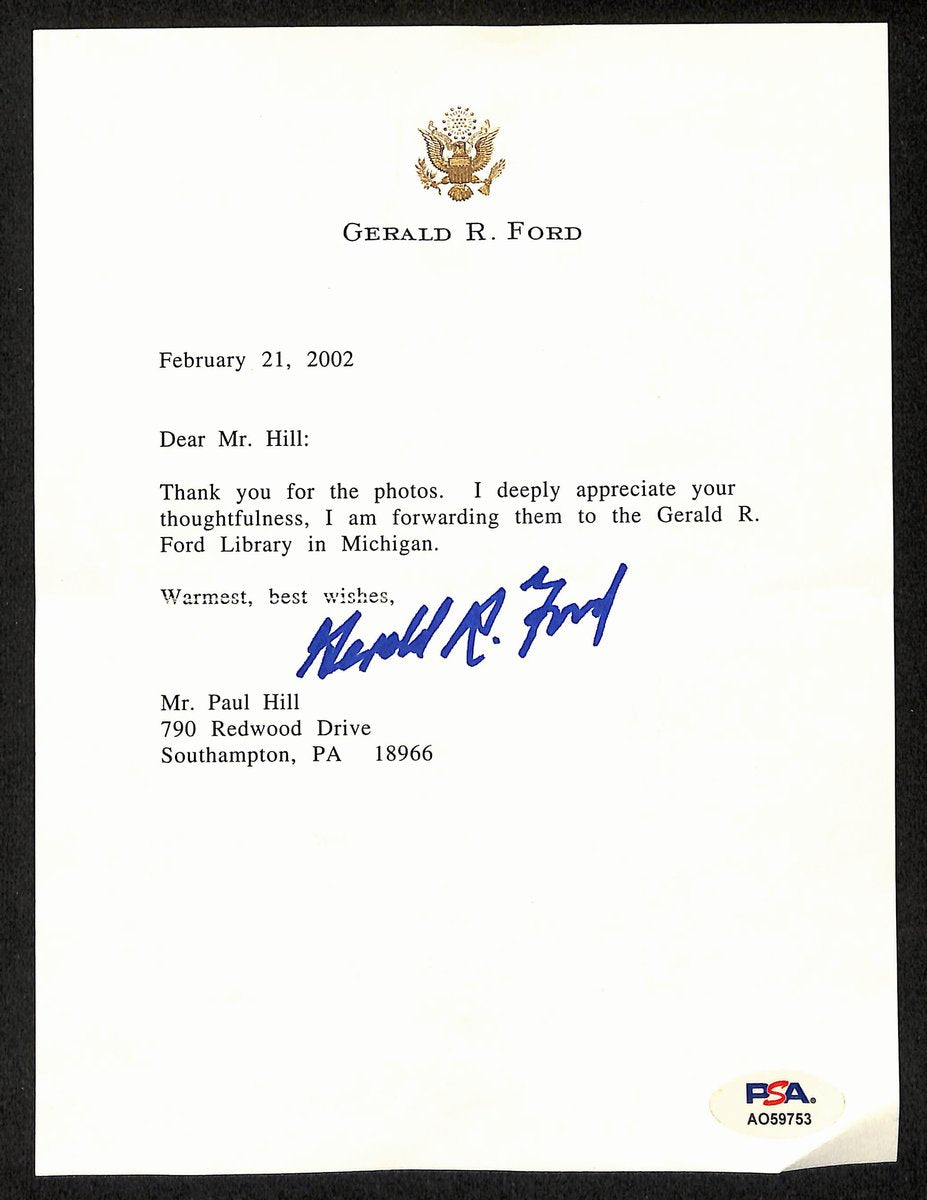 GERALD R. FORD
February 21, 2002
Dear Mr. Hill:
Thank you for the photos. I deeply appreciate your
thoughtfulness, I am forwarding them to the Gerald R.
Ford Library in Michigan.
Warmest, best wishes,
Gerald R. Ford
Mr. Paul Hill
790 Redwood Drive
Southampton, PA 18966
PSA.
AO59753